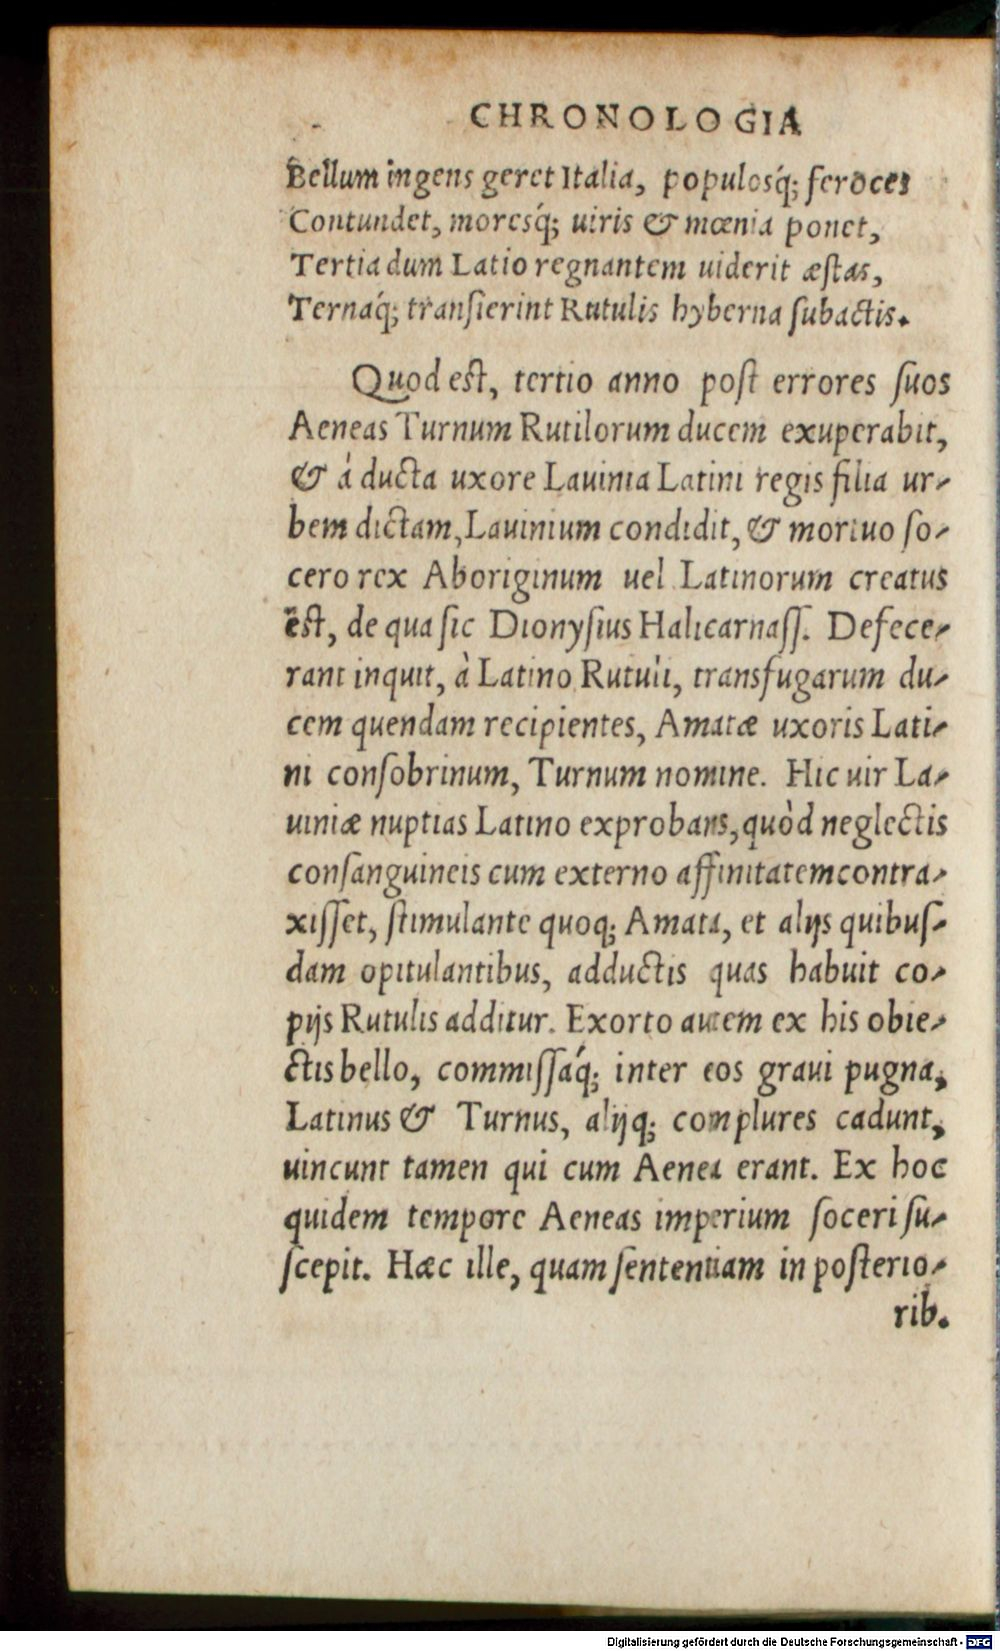 CHRONOLOGIA
Bellum ingens geret Italia, populosq́; feroces
Contundet, moresq́; uiris & mœnia ponet,
Tertia dum Latio regnantem uiderit æstas,
Ternaq́; transierint Rutulis hyberna subactis.
Quod est, tertio anno post errores suos
Aeneas Turnum Rutilorum ducem exuperabit,
& á ducta uxore Lauinia Latini regis filia ur-
bem dictam, Lauinium condidit, & mortuo so-
cero rex Aboriginum uel Latinorum creatus
est, de qua sic Dionysius Halicarnass. Defece-
rant inquit, à Latino Rutuli, transfugarum du-
cem quendam recipientes, Amatæ uxoris Lati-
ni consobrinum, Turnum nomine. Hic uir La-
uiniæ nuptias Latino exprobans, quòd neglectis
consanguineis cum externo affinitatem contra-
xisset, stimulante quoq; Amata, et alijs quibus-
dam opitulantibus, adductis quas habuit co-
pijs Rutulis additur. Exorto autem ex his obie-
ctis bello, commissaq́; inter eos graui pugna,
Latinus & Turnus, alijq; complures cadunt,
uincunt tamen qui cum Aenea erant. Ex hoc
quidem tempore Aeneas imperium soceri su-
scepit. Hæc ille, quam sententiam in posterio-
rib.
Digitalisierung gefördert durch die Deutsche Forschungsgemeinschaft - DFG